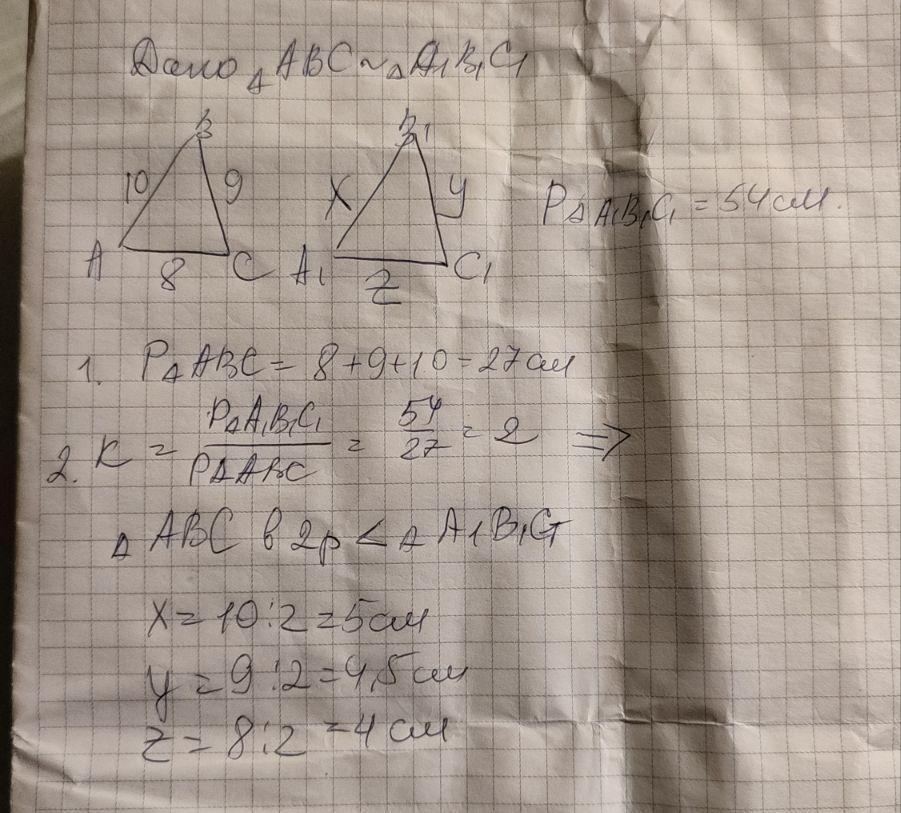 Дано △ABC ~ △A₁B₁C₁
B
B₁
10
9
X
y
P△A₁B₁C₁ = 54 см.
A
8
C
A₁
Z
C₁
1. P△ABC = 8+9+10 = 27 см
2. K = P△A₁B₁C₁ / P△ABC = 54/27 = 2 ⇒
△ABC в 2р < △A₁B₁C₁
X = 10:2 = 5 см
y = 9:2 = 4,5 см
z = 8:2 = 4 см